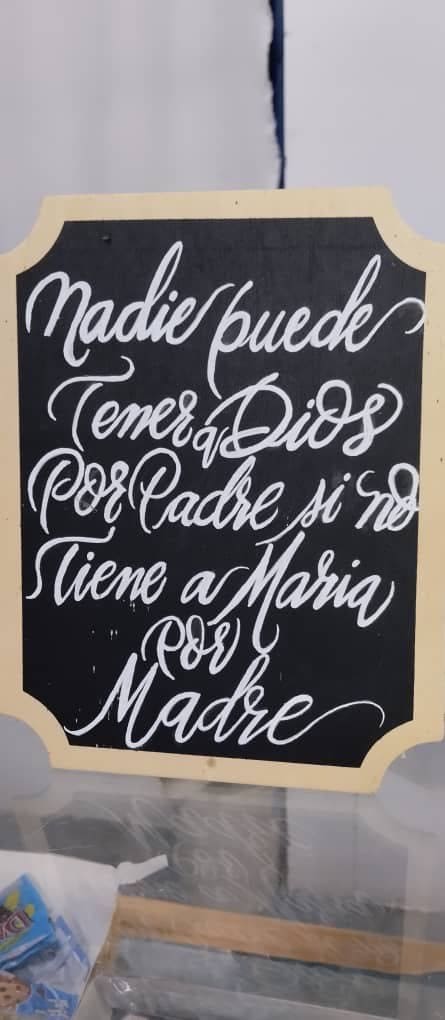 Nadie puede
Tener a Dios
Por Padre si no
Tiene a Maria
Por
Madre